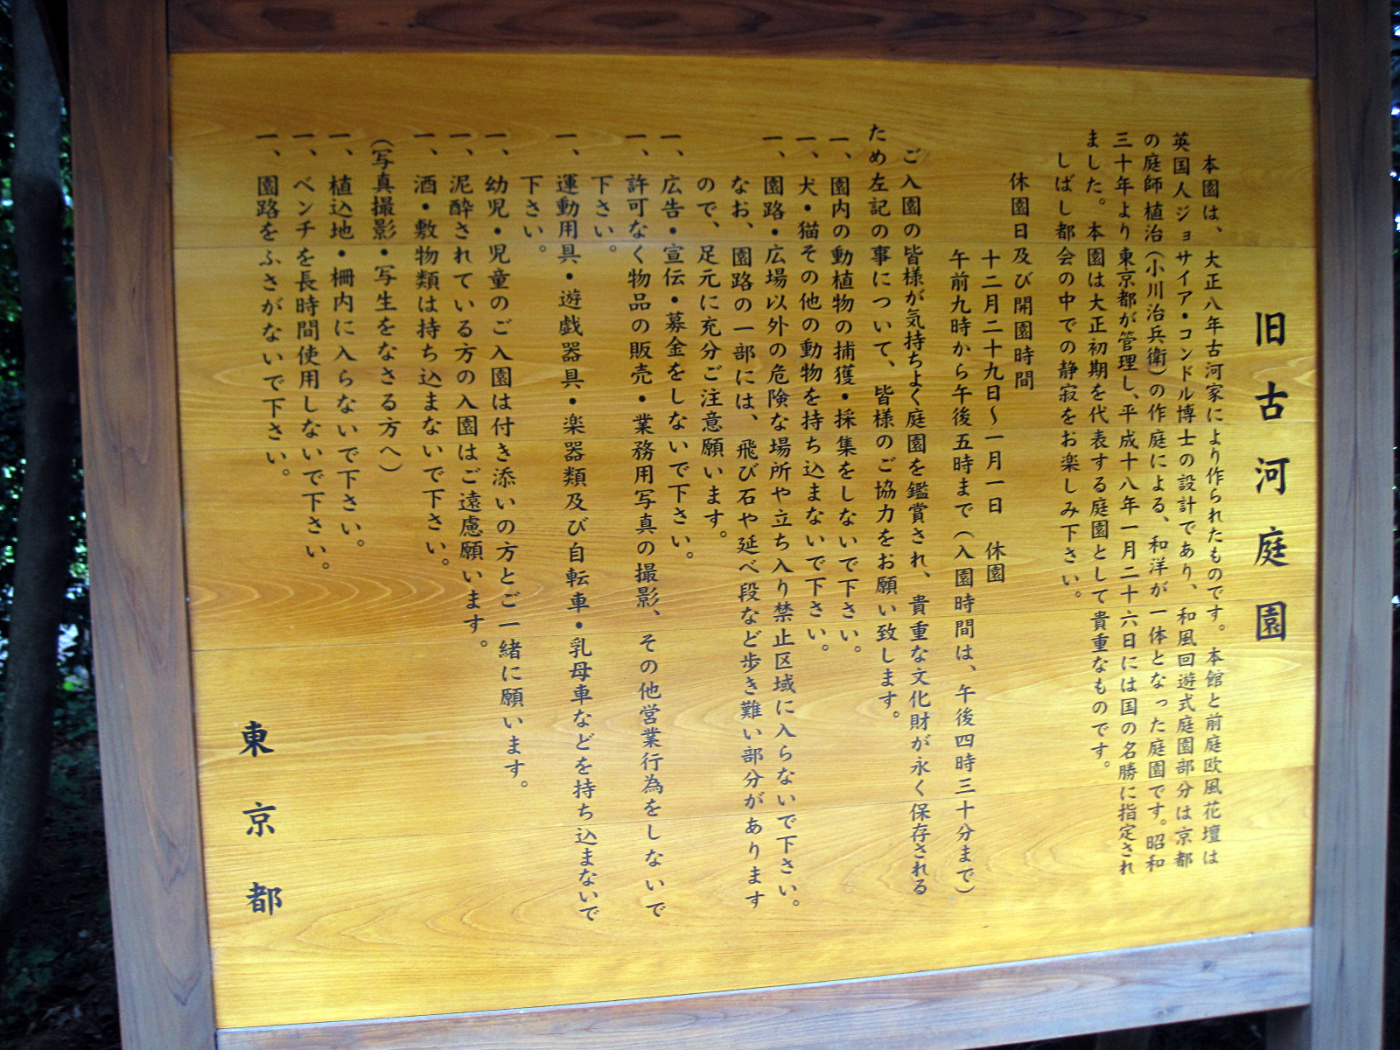 旧古河庭園
本園は、大正八年古河家により作られたものです。本館と前庭欧風花壇は
英国人ジョサイア・コンドル博士の設計であり、和風回遊式庭園部分は京都
の庭師植治(小川治兵衛)の作庭による、和洋が一体となった庭園です。昭和
三十年より東京都が管理し、平成十八年一月二十六日には国の名勝に指定され
ました。本園は大正初期を代表する庭園として貴重なものです。
しばし都会の中での静寂をお楽しみ下さい。
休園日及び開園時間
十二月二十九日～一月一日 休園
午前九時から午後五時まで(入園時間は、午後四時三十分まで)
ご入園の皆様が気持ちよく庭園を鑑賞され、貴重な文化財が永く保存される
ため左記の事について、皆様のご協力をお願い致します。
一、園内の動植物の捕獲・採集をしないで下さい。
一、犬・猫その他の動物を持ち込まないで下さい。
一、園路・広場以外の危険な場所や立ち入り禁止区域に入らないで下さい。
なお、園路の一部には、飛び石や延べ段など歩き難い部分があります
ので、足元に充分ご注意願います。
一、広告・宣伝・募金をしないで下さい。
一、許可なく物品の販売・業務用写真の撮影、その他営業行為をしないで
下さい。
一、運動用具・遊戯器具・楽器類及び自転車・乳母車などを持ち込まないで
下さい。
一、幼児・児童のご入園は付き添いの方とご一緒に願います。
一、泥酔されている方の入園はご遠慮願います。
一、酒・敷物類は持ち込まないで下さい。
(写真撮影・写生をなさる方へ)
一、植込地・柵内に入らないで下さい。
一、ベンチを長時間使用しないで下さい。
一、園路をふさがないで下さい。
東京都